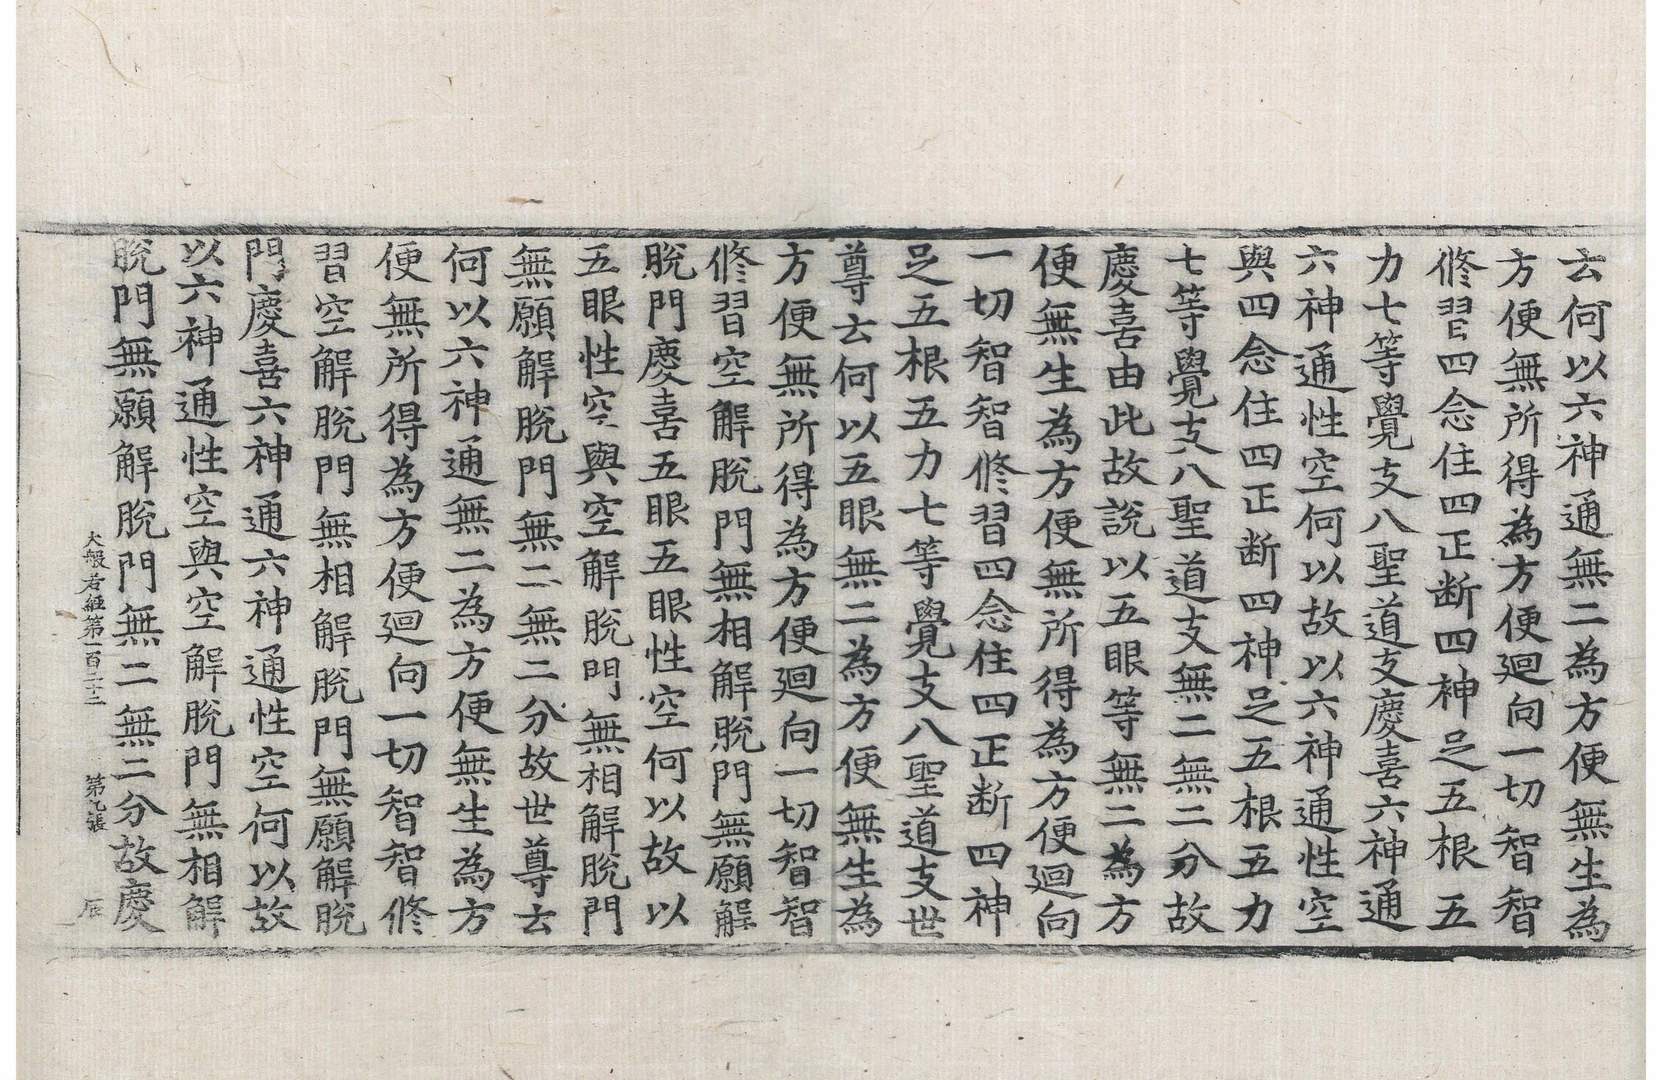 云何以六神通無二為方便無生為
方便無所得為方便迴向一切智智
修習四念住四正断四神足五根五
力七等覺支八聖道支慶喜六神通
六神通性空何以故以六神通性空
與四念住四正断四神足五根五力
七等覺支八聖道支無二無二分故
慶喜由此故說以五眼等無二為方
便無生為方便無所得為方便迴向
一切智智修習四念住四正断四神
足五根五力七等覺支八聖道支世
尊云何以五眼無二為方便無生為
方便無所得為方便迴向一切智智
修習空解脫門無相解脫門無願解
脫門慶喜五眼五眼性空何以故以
五眼性空與空解脫門無相解脫門
無願解脫門無二無二分故世尊云
何以六神通無二為方便無生為方
便無所得為方便迴向一切智智修
習空解脫門無相解脫門無願解脫
門慶喜六神通六神通性空何以故
以六神通性空與空解脫門無相解
脫門無願解脫門無二無二分故慶
大般若經第一百二十二 第九張 辰